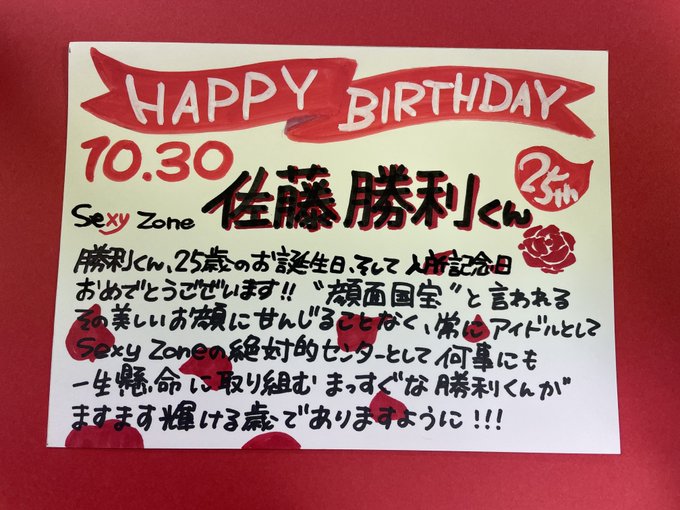 HAPPY BIRTHDAY
10.30
25th
Sexy Zone 佐藤勝利くん
勝利くん、25歳のお誕生日、そして入所記念日
おめでとうございます!! "顔面国宝"と言われる
その美しいお顔に甘んじることなく、常にアイドルとして
Sexy Zoneの絶対的センターとして何事にも
一生懸命に取り組むまっすぐな勝利くんが
ますます輝ける歳でありますように!!!